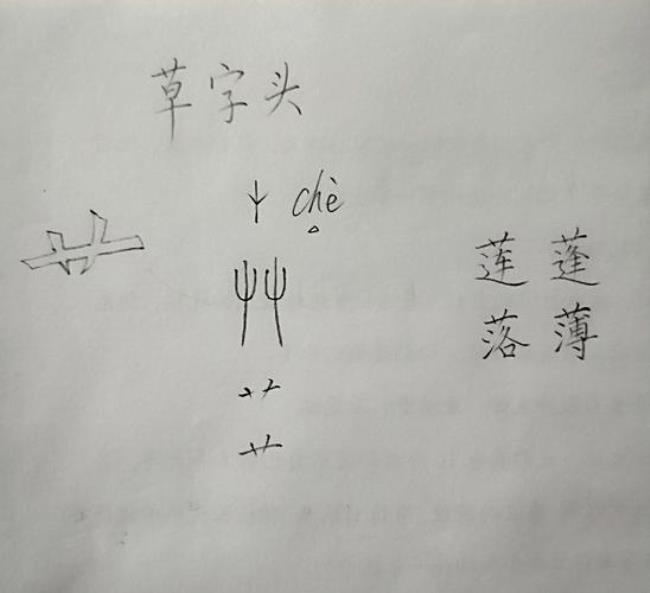 草字头
屮 chè
艸
艹
艹
莲 蓬
落 薄